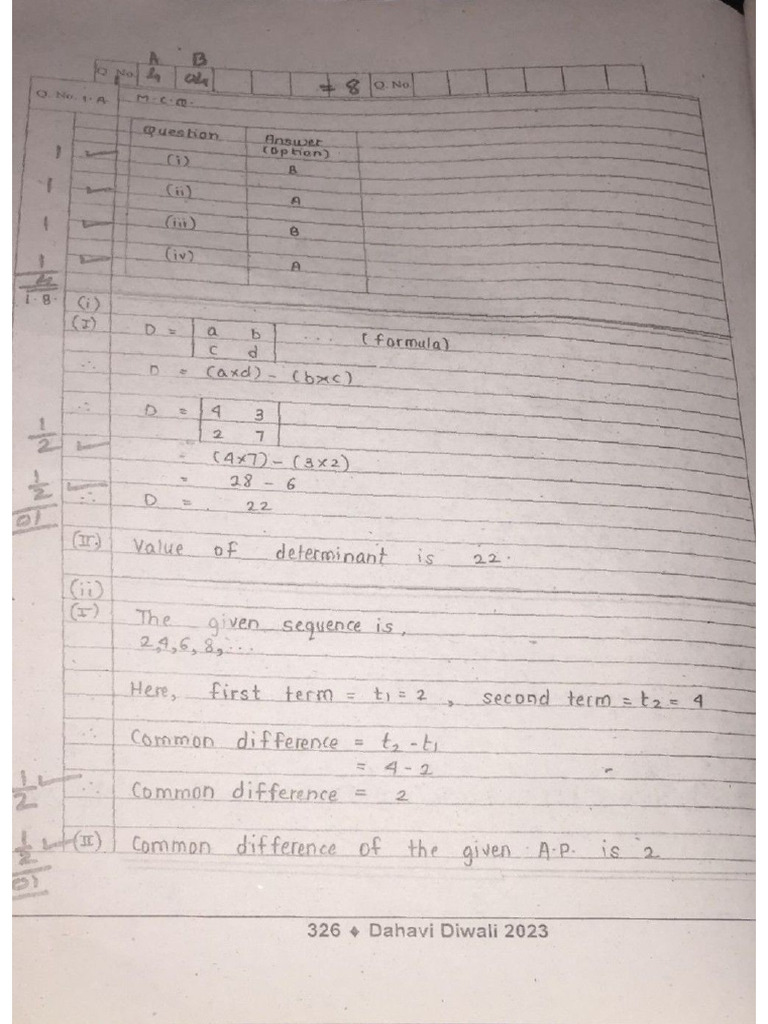 A B
Q. No. 4 04 = 8 Q. No.
Q. No. 1. A M.C.Q.
Question Answer (Option)
1 (i) B
1 (ii) A
1 (iii) B
1 (iv) A
4
1. B. (i)
(I) D = | a b | ... (formula)
| c d |
∴ D = (a×d) - (b×c)
∴ D = | 4 3 |
| 2 7 |
1/2 = (4×7) - (3×2)
1/2 = 28 - 6
01 ∴ D = 22
(II) Value of determinant is 22.
(ii)
(I) The given sequence is,
2,4,6,8,...
Here, first term = t₁ = 2 , second term = t₂ = 4
∴ Common difference = t₂ - t₁
= 4 - 2
1/2 ∴ Common difference = 2
1/2 (II) Common difference of the given A.P. is 2
01
326 ♦ Dahavi Diwali 2023